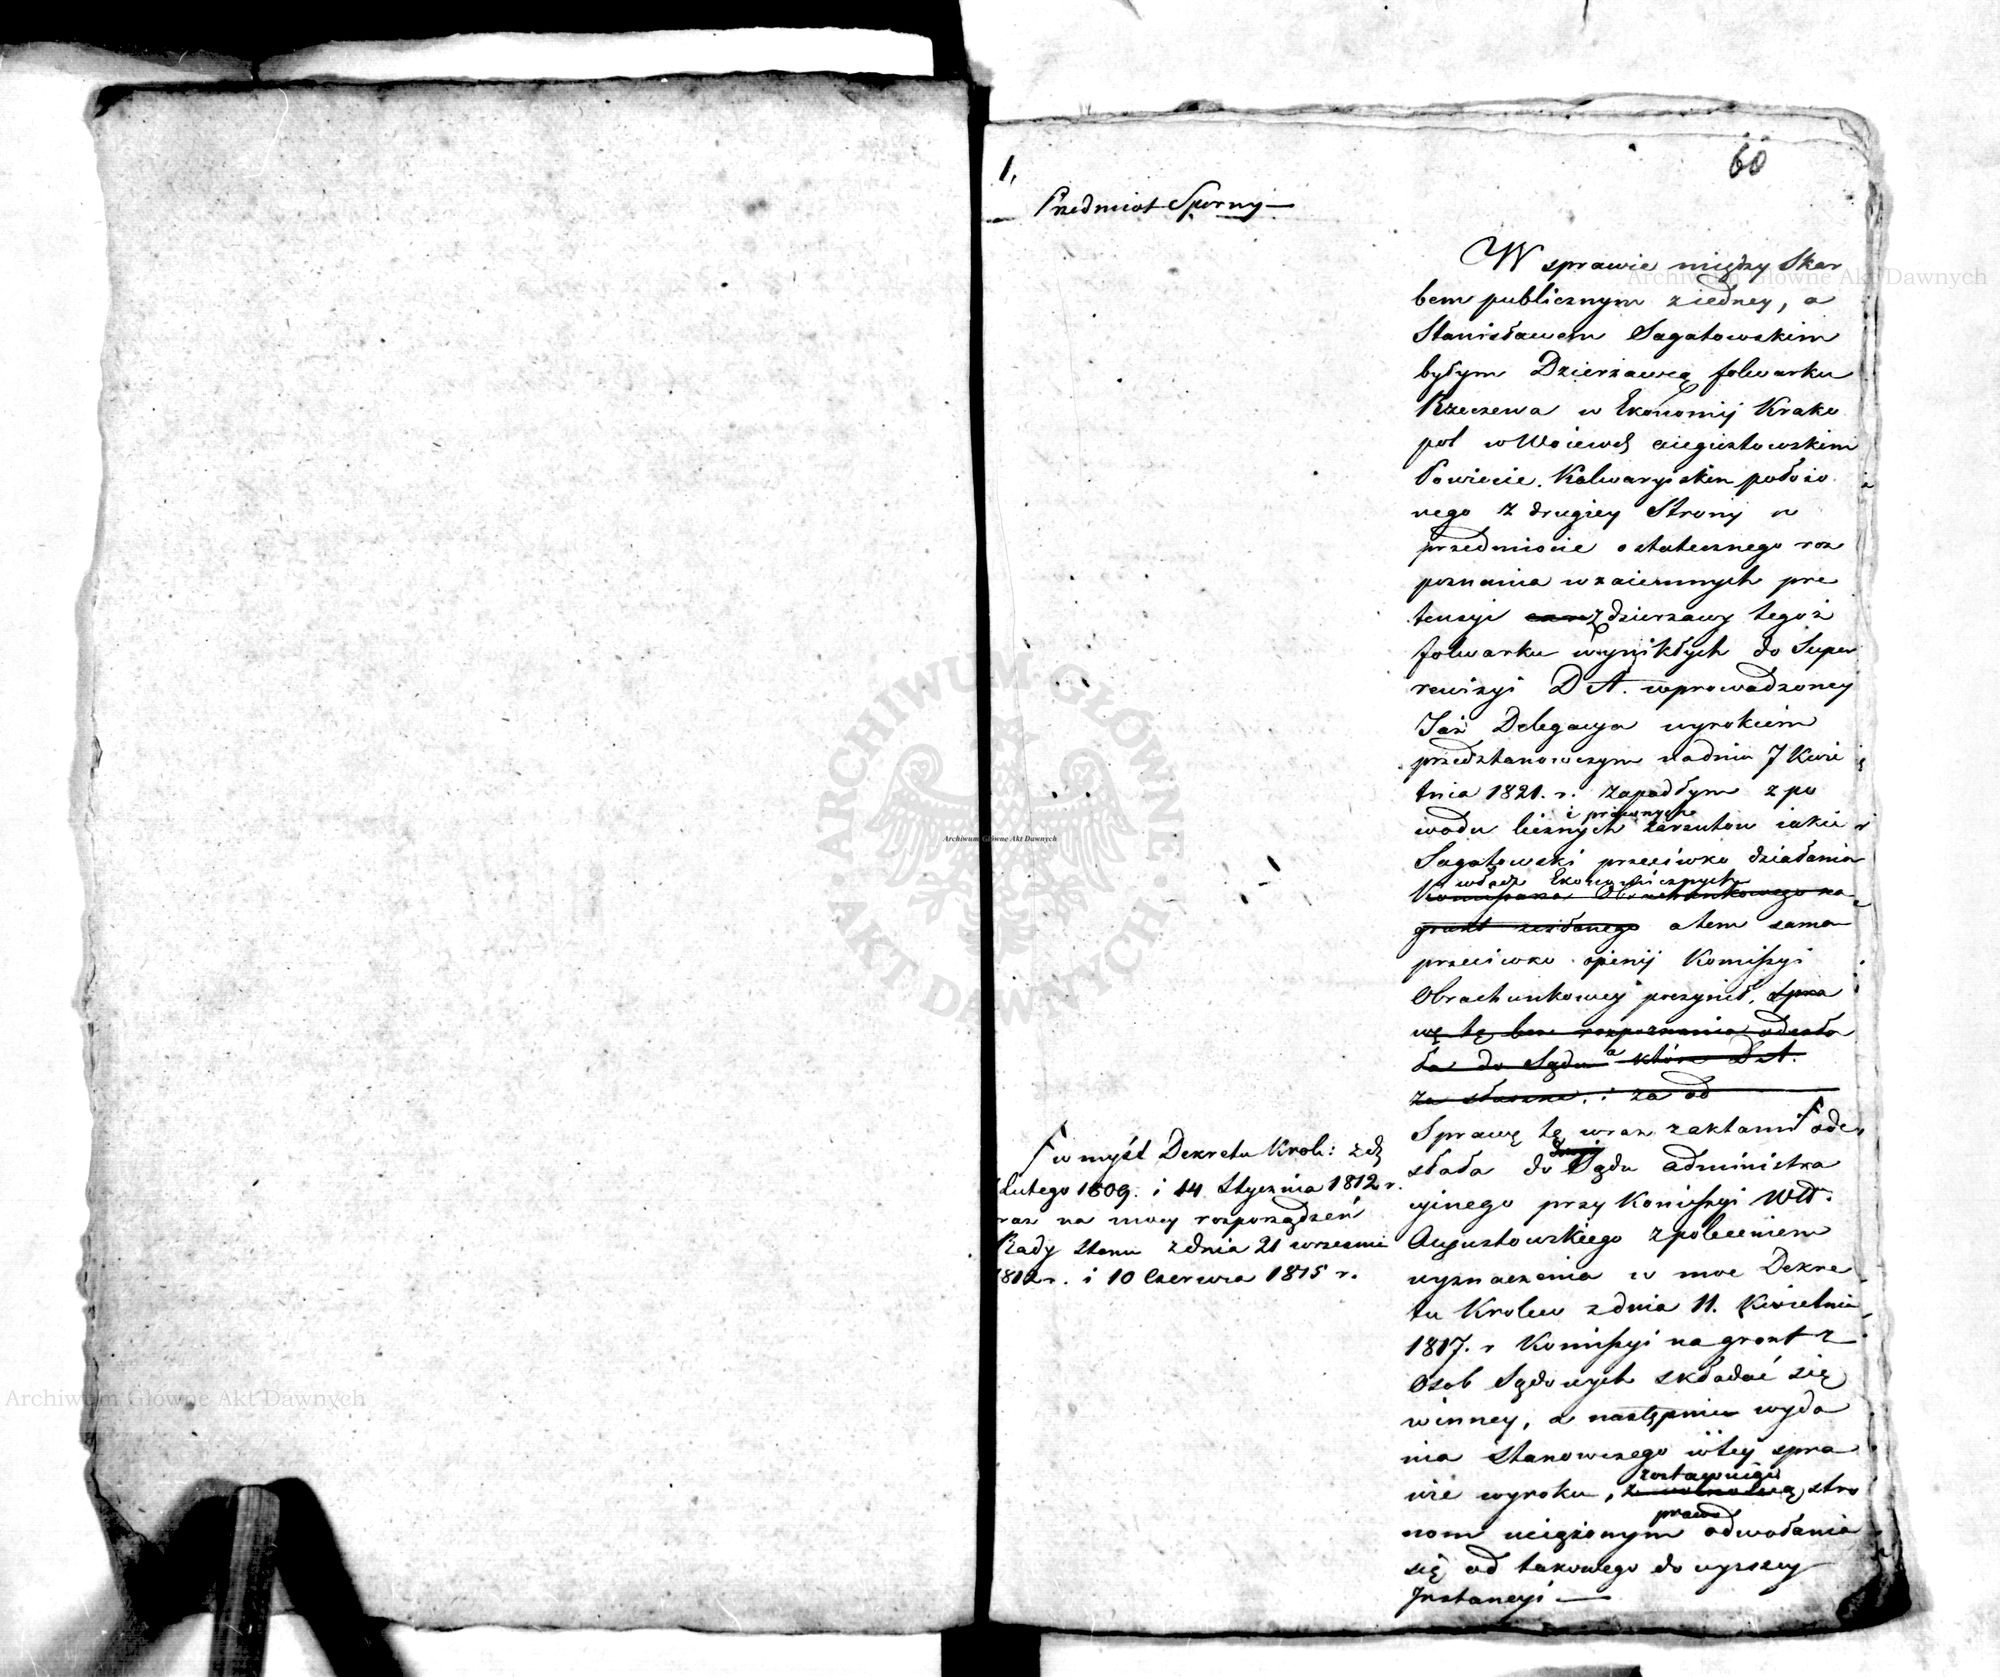 60
1.
Przedmiot Sporny —
W sprawie między Skar
bem publicznym z iedney, a
Stanisławem Sagatowskim
byłym Dzierżawcą folwarku
w Ekonomij Krako
pol w Woiewd Augustowskim
Powiecie Kalwaryiskim położo
nego z drugiey Strony w
przedmiocie ostatecznego roz
poznania wzaiemnych pre
tensyi z dzierżawy tegoż
folwarku wynikłych do Super
rewizyi D A. wprowadzoney
Taż Delegacya wyrokiem
przedstanowczym na dniu 7 Kwie
tnia 1821. r. zapadłym z po
i prawnych
wodu licznych zarzutow iakie
Sagatowski przeciwko działania
władz Ekonomicznych
Obrachunkowego na
grunt zesłanego a tem samem
przeciwko opinij Komissyi
Obrachunkowey poczynił, spra
wę tę bez rozpoznania odesła
ła do Sądu a które D A.
za słuszne i za od
Sprawę tę wraz z aktami ode
słała do Sądu administra
cyinego przy Komissyi Wdt.
Augustowskiego z poleceniem
wyznaczenia w moc Dekre
tu Krolew z dnia 11. Kwietnia
1817. r Komissyi na grunt z
Osob Sądowych składać się
winney, a następnie wyda
nia Stanowczego w tey spra
zostawuiąc
wie wyroku, z wolnością stro
prawo
nom uciążonym odwołania
się od takowego do wyższey
Instancyi —
w myśl Dekretu Krol: z d.
Lutego 1809. i 14 Stycznia 1812 r.
raz na mocy rozporządzeń
Rady Stanu z dnia 21 wrzesnia
1812 r. i 10 Czerwca 1815 r.
Archiwum Główne Akt Dawnych
Archiwum Główne Akt Dawnych
Archiwum Główne Akt Dawnych
ARCHIWUM GŁÓWNE · AKT DAWNYCH ·